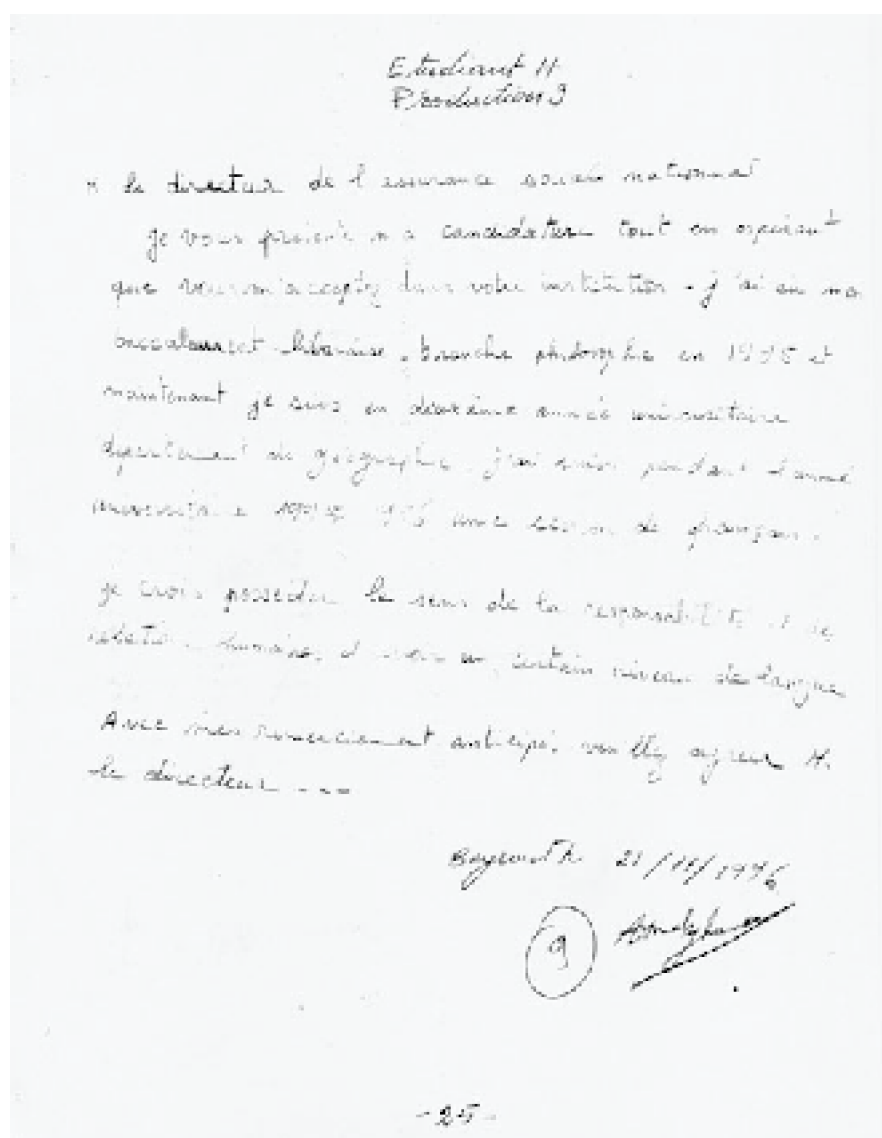 Etudiant 11
Production 9
M le directeur de l'assurance sociale national
je vous présente ma candidature tout en espérant
que vous m'acceptez dans votre institution. j'ai eu mon
baccalauréat libanaise, branche philosophie en 1995 et
maintenant je suis en deuxième année universitaire
département de géographie. j'ai suivi pendant l'année
universitaire une session de français.
je crois posséder le sens de la responsabilité
relation humaine, et un certain niveau de langue
Avec mes remerciement anticipé, veuillez agréer M.
le directeur ---
Beyrouth 21/11/1996
9
-25-